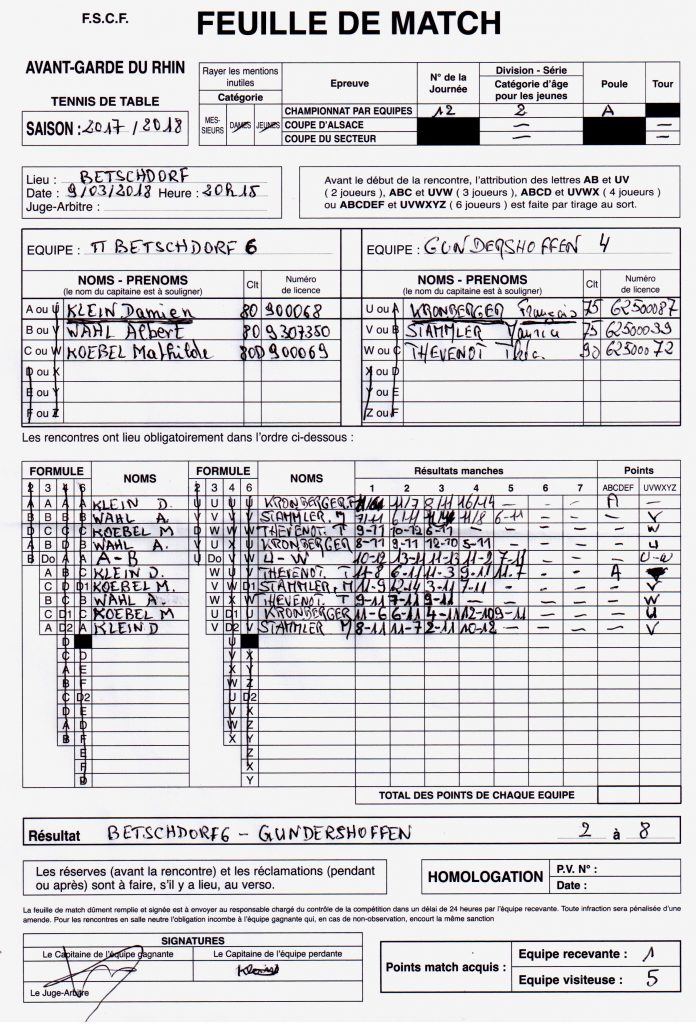 F.S.C.F.
FEUILLE DE MATCH
AVANT-GARDE DU RHIN
TENNIS DE TABLE
SAISON : 2017 / 2018
Rayer les mentions inutiles
Catégorie
MES-SIEURS DAMES JEUNES
Epreuve
N° de la Journée
Division - Série
Catégorie d'âge pour les jeunes
Poule
Tour
CHAMPIONNAT PAR EQUIPES 12 2 A
COUPE D'ALSACE —
COUPE DU SECTEUR — —
Lieu : BETSCHDORF
Date : 9/03/2018 Heure : 20H15
Juge-Arbitre :
Avant le début de la rencontre, l'attribution des lettres AB et UV
( 2 joueurs ), ABC et UVW ( 3 joueurs ), ABCD et UVWX ( 4 joueurs )
ou ABCDEF et UVWXYZ ( 6 joueurs ) est faite par tirage au sort.
EQUIPE : BETSCHDORF 6
EQUIPE : GUNDERSHOFFEN 4
NOMS - PRENOMS
(le nom du capitaine est à souligner)
Clt
Numéro de licence
NOMS - PRENOMS
(le nom du capitaine est à souligner)
Clt
Numéro de licence
A ou U KLEIN Damien 80 900068
U ou A KRONBERGER François 75 62500087
B ou V WAHL Albert 80 9307350
V ou B STAMMLER 75 62500039
C ou W KOEBEL Mathilde 80D 900069
W ou C THEVENOT 90 62500072
D ou X
X ou D
E ou Y
Y ou E
F ou Z
Z ou F
Les rencontres ont lieu obligatoirement dans l'ordre ci-dessous :
FORMULE NOMS FORMULE NOMS Résultats manches Points
2 3 4 6 2 3 4 6 1 2 3 4 5 6 7 ABCDEF UVWXYZ
KLEIN D. KRONBERGER F 11/7 8/11 16/14 — — — A —
WAHL A. STAMMLER. M 7/11 6-11 11/8 6-11 — — — V
KOEBEL M THEVENOT. T 9-11 10-12 6-11 — — — — — W
WAHL A. KRONBERGER 8-11 9-11 12-10 5-11 — — — — U
A-B U-W 10-12 13-11 11-13 11-2 7-11 — — — U-W
KLEIN D. THEVENOT. T 11-8 6-11 11-3 9-11 11-7 — — A
KOEBEL M. STAMMLER, M 11-9 12-14 3-11 7-11 — — — — V
WAHL A. THEVENOT T 9-11 7-11 9-11 — — — — — W
KOEBEL M KRONBERGER 11-6 6-11 4-11 12-10 9-11 — — — U
KLEIN D STAMMLER M 8-11 11-7 2-11 10-12 — — — — V
TOTAL DES POINTS DE CHAQUE EQUIPE
Résultat BETSCHDORF6 - GUNDERSHOFFEN 2 à 8
Les réserves (avant la rencontre) et les réclamations (pendant
ou après) sont à faire, s'il y a lieu, au verso.
HOMOLOGATION
P.V. N° :
Date :
La feuille de match dûment remplie et signée est à envoyer au responsable chargé du contrôle de la compétition dans un délai de 24 heures par l'équipe recevante. Toute infraction sera pénalisée d'une
amende. Pour les rencontres en salle neutre l'obligation incombe à l'équipe gagnante qui, en cas de non-observation, encourt la même sanction
SIGNATURES
Le Capitaine de l'équipe gagnante
Le Capitaine de l'équipe perdante
Le Juge-Arbitre
Points match acquis :
Equipe recevante : 1
Equipe visiteuse : 5